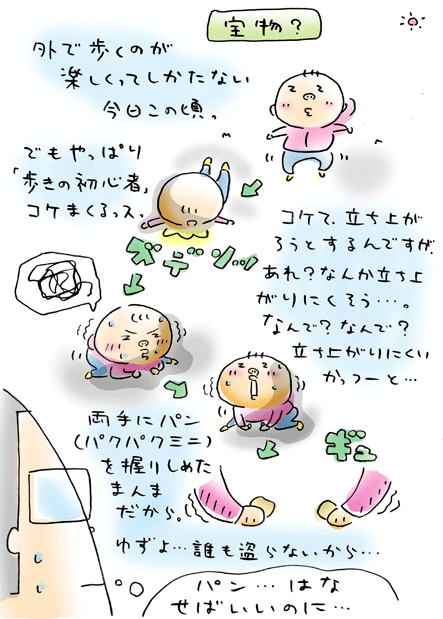 宝物?
外で歩くのが
楽しくってしかたない
今日この頃。
でもやっぱり
「歩きの初心者」
コケまくるッス。
ズデッ!!
コケて、立ち上が
ろうとするんですが、
あれ?なんか立ち上
がりにくそう…。
なんで?なんで?
立ち上がりにくい
かっつーと…
両手にパン
(パクパクミニ)
を握りしめた
まんま
だから。
ギュ
ゆずよ…誰も盗らないから…
パン…はな
せばいいのに…